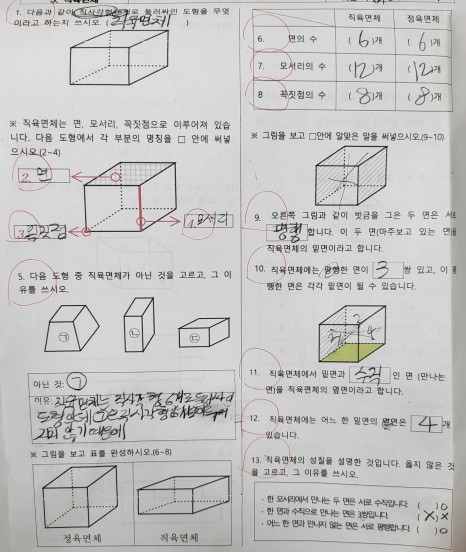 1. 다음과 같이 직사각형 6개로 둘러싸인 도형을 무엇
이라고 하는지 쓰시오. ( 직육면체 )
※ 직육면체는 면, 모서리, 꼭짓점으로 이루어져 있습
니다. 다음 도형에서 각 부분의 명칭을 □ 안에 써넣
으시오.(2~4)
2. 면
3. 꼭짓점
4. 모서리
5. 다음 도형 중 직육면체가 아닌 것을 고르고, 그 이
유를 쓰시오.
㉠ ㉡ ㉢
아닌 것: ㉠
이유: 직육면체는 직사각형 6개로 둘러싸
※ 그림을 보고 표를 완성하시오.(6~8)
정육면체 직육면체
직육면체 정육면체
6. 면의 수 ( 6 )개 ( 6 )개
7. 모서리의 수 ( 12 )개 ( 12 )개
8 꼭짓점의 수 ( 8 )개 ( 8 )개
※ 그림을 보고 □안에 알맞은 말을 써넣으시오.(9~10)
9. 오른쪽 그림과 같이 빗금을 그은 두 면은 서로
평행 합니다. 이 두 면(마주보고 있는 면)을
직육면체의 밑면이라고 합니다.
10. 직육면체에는 평행한 면이 3 쌍 있고, 이 평
행한 면은 각각 밑면이 될 수 있습니다.
11. 직육면체에서 밑면과 수직 인 면 (만나는
면)을 직육면체의 옆면이라고 합니다.
12. 직육면체에는 어느 한 밑면의 옆면은 4 개
있습니다.
13. 직육면체의 성질을 설명한 것입니다. 옳지 않은 것
을 고르고, 그 이유를 쓰시오.
· 한 모서리에서 만나는 두 면은 서로 수직입니다. ( )○
· 한 면과 수직으로 만나는 면은 3쌍입니다. ( X )X
· 어느 한 면과 만나지 않는 면은 서로 평행합니다. ( )○